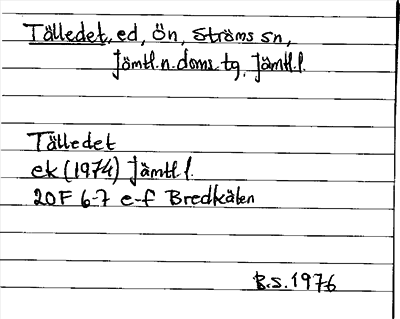 Tälledet, ed, Ön, Ströms sn,
Jämtl. n. doms. tg, Jämtl. l.
Tälledet
ek (1974) Jämtl. l.
20F 6-7 e-f Bredkälen
B.S. 1976